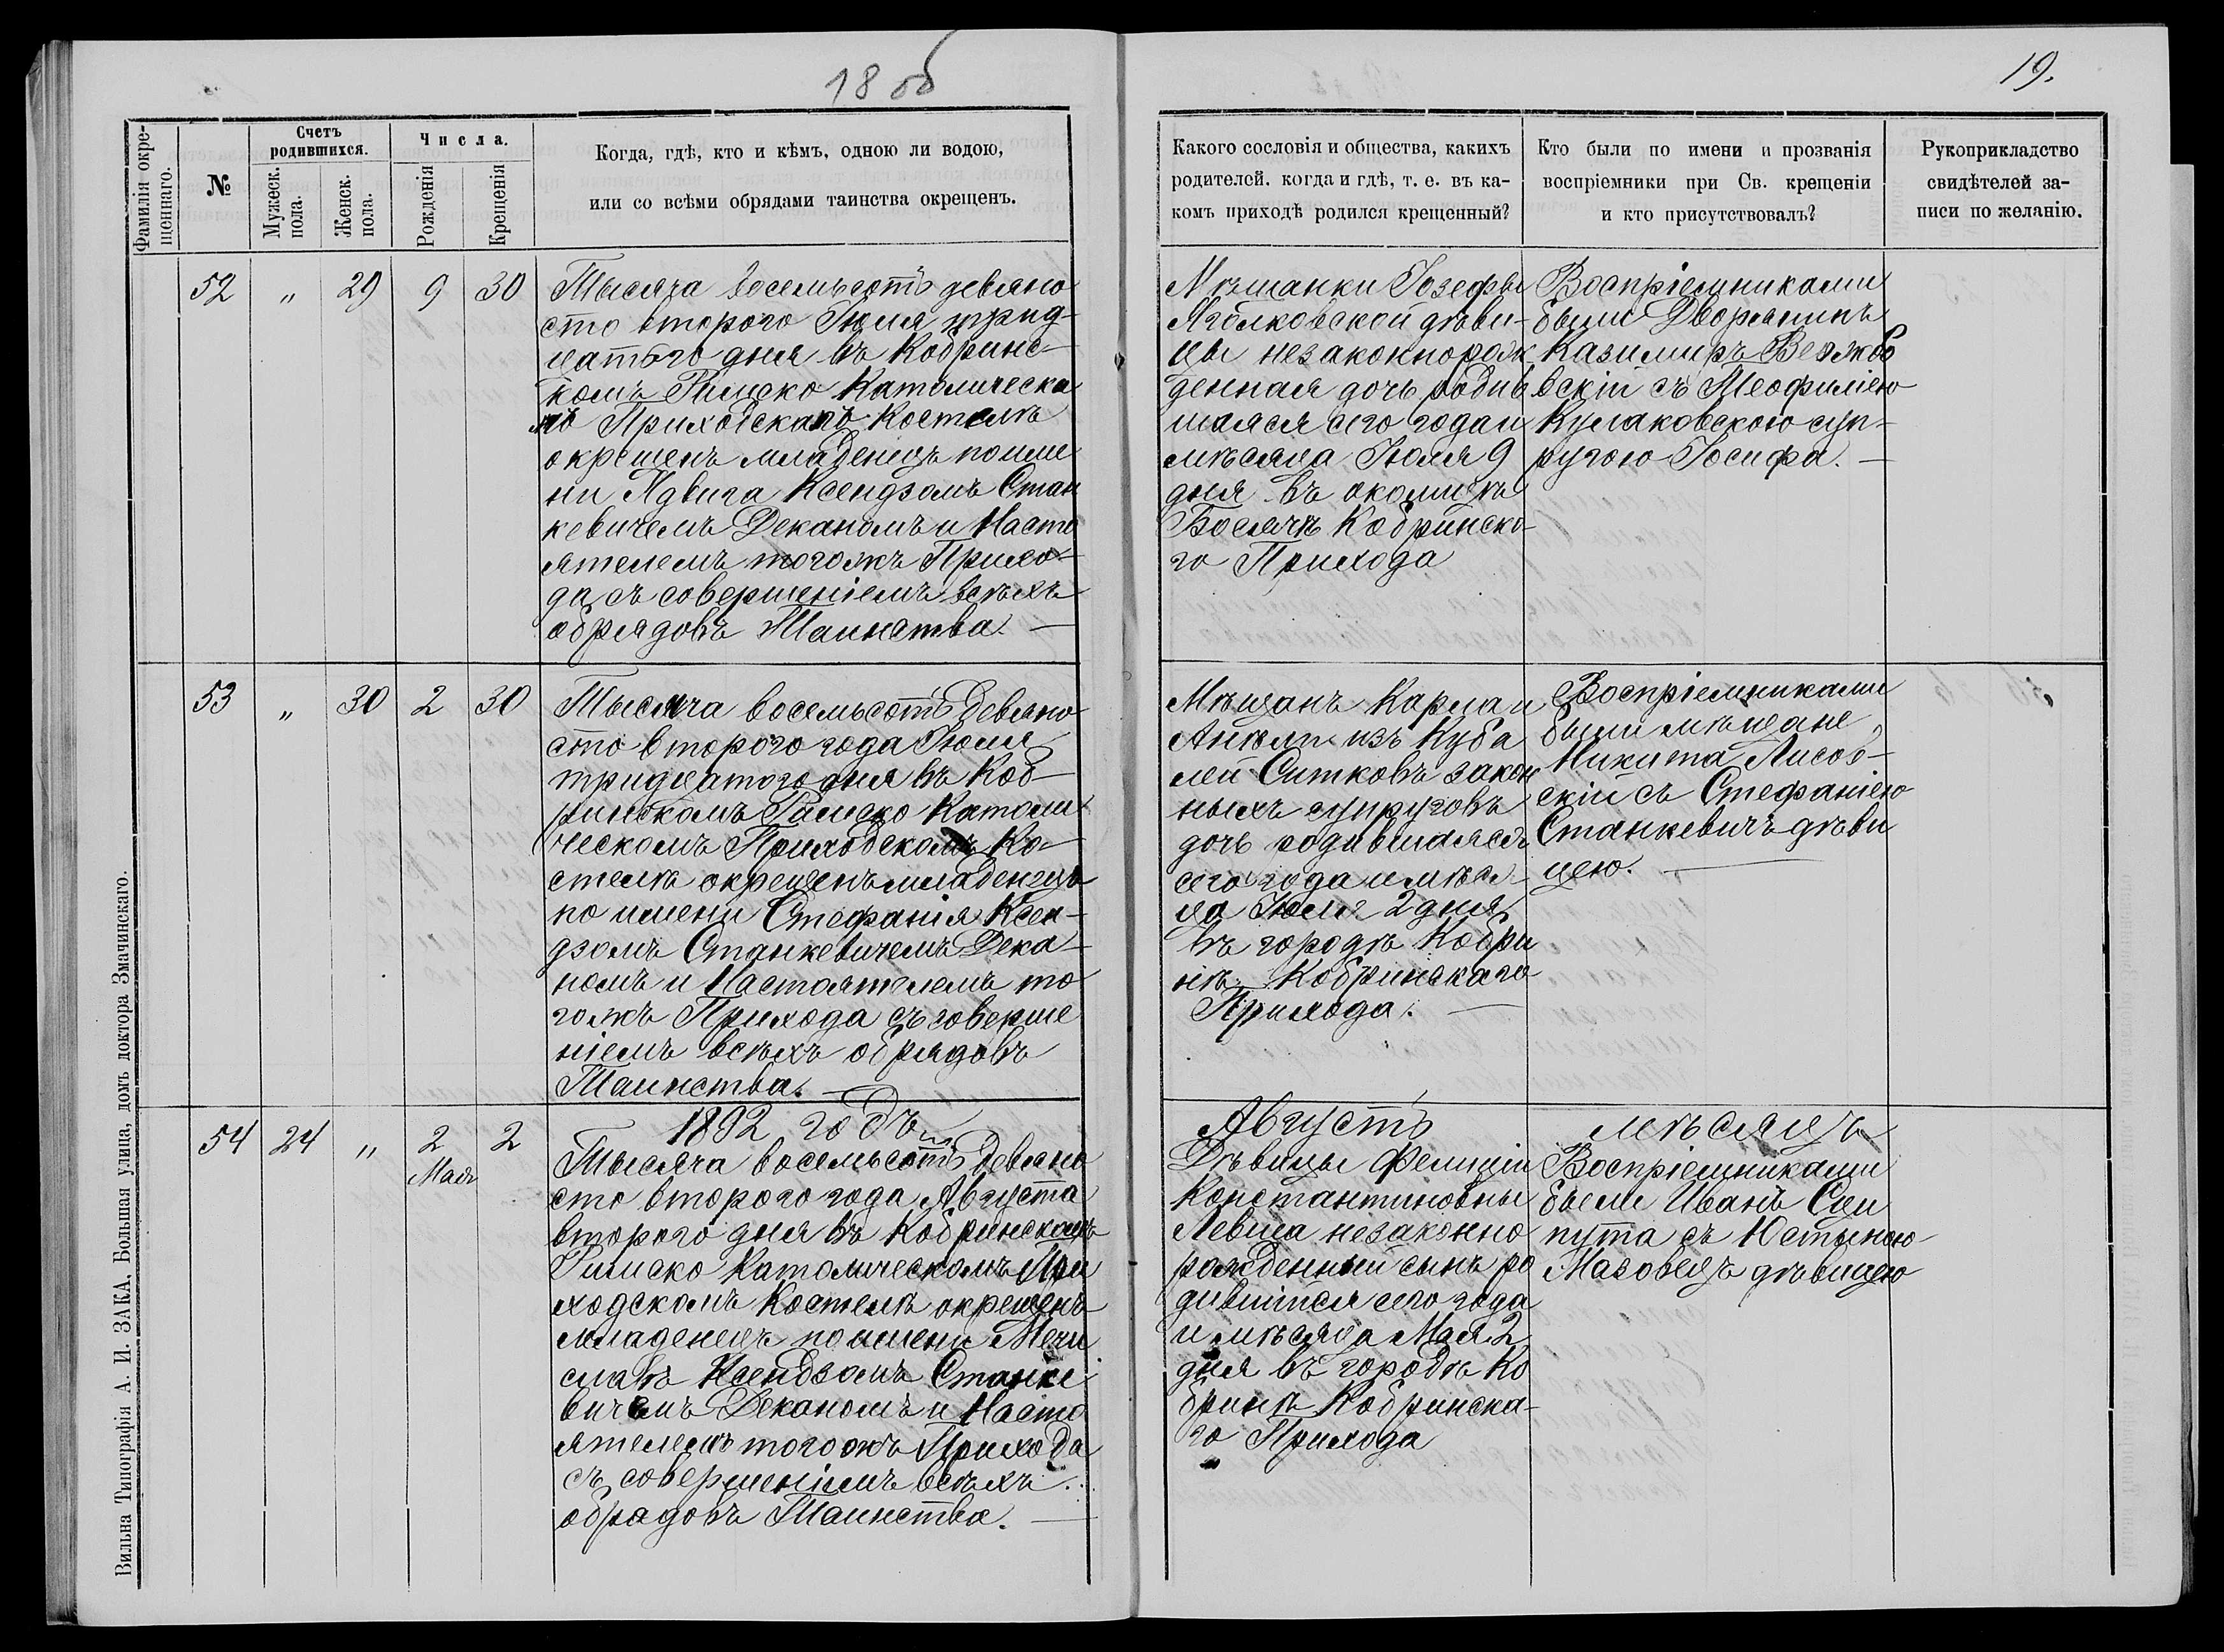 18 об
19.
Фамилія окре-
щеннаго.
№
Счетъ
родившихся.
Мужеск.
пола.
Женск.
пола.
Числа.
Рожденія
Крещенія
Когда, гдѣ, кто и кѣмъ, одною ли водою,
или со всѣми обрядами таинства окрещенъ.
Какого сословія и общества, какихъ
родителей. когда и гдѣ, т. е. въ ка-
комъ приходѣ родился крещенный?
Кто были по имени и прозванія
воспріемники при Св. крещеніи
и кто присутствовалъ?
Рукоприкладство
свидѣтелей за-
писи по желанію.
52 „ 29 9 30
Тысяча восемьсотъ девяно
сто второго Іюля трид-
цатого дня въ Кобринс-
комъ Римско Католическо
мъ Приходскомъ Костелѣ
окрещенъ младенецъ по име
ни Ядвига Ксендзомъ Стан
кевичемъ Деканомъ и Насто
ятелемъ тогожъ Прихо-
да съ совершеніемъ всѣхъ
обрядовъ Таинства. —
Мѣщанки Іозефы
Яголковской дѣви-
цы незаконнорож
денная дочь родив
шаяся сего года и
мѣсяца Іюля 9
дня въ околицѣ
Босячѣ Кобринско-
го Прихода
Воспріемниками
были Дворянинъ
Казимиръ Вержбо
вскій съ Теофиліею
Кулаковскою суп-
ругою Іосифа. —
53 „ 30 2 30
Тысяча восемьсотъ девяно
сто второго года Іюля
тридцатого дня въ Коб-
ринскомъ Римско Католи
ческомъ Приходскомъ Ко-
стелѣ окрещенъ младенецъ
по имени Стефанія Ксен-
дзомъ Станкевичемъ Дека-
номъ и Настоятелемъ то
гожъ Прихода съ соверше
ніемъ всѣхъ обрядовъ
Таинства. —
Мѣщанъ Карла и
Анели изъ Куба
лей Ситковъ закон
ныхъ супруговъ
дочь родившаяся
сего года и мѣся
ца Іюля 2 дня
въ городѣ Кобри
нѣ Кобринскаго
Прихода. —
Воспріемниками
были мѣщане
Никита Лисов-
скій съ Стефаніею
Станкевичъ дѣви
цею. —
1892 годъ
Августъ
мѣсяцъ
54 24 „ 2 2
Мая
Тысяча восемьсотъ девяно
сто второго года Августа
второго дня въ Кобринскомъ
Римско Католическомъ При
ходскомъ Костелѣ окрещенъ
младенецъ по имени Мечи
славъ Ксендзомъ Станке
вичемъ Деканомъ и Насто
ятелемъ тогожъ Прихода
съ совершеніемъ всѣхъ
обрядовъ Таинства. —
Дѣвицы Фелиціи
Константиновны
Левша незаконно
рожденный сынъ ро
дившійся сего года
и мѣсяца Мая 2
дня въ городѣ Ко
бринѣ Кобринска-
го Прихода
Воспріемниками
были Иванъ Сци
пута съ Юстыною
Мазовецъ дѣвицею
Вильна Типографія А. И. ЗАКА, Большая улица, домъ доктора Змачинскаго.